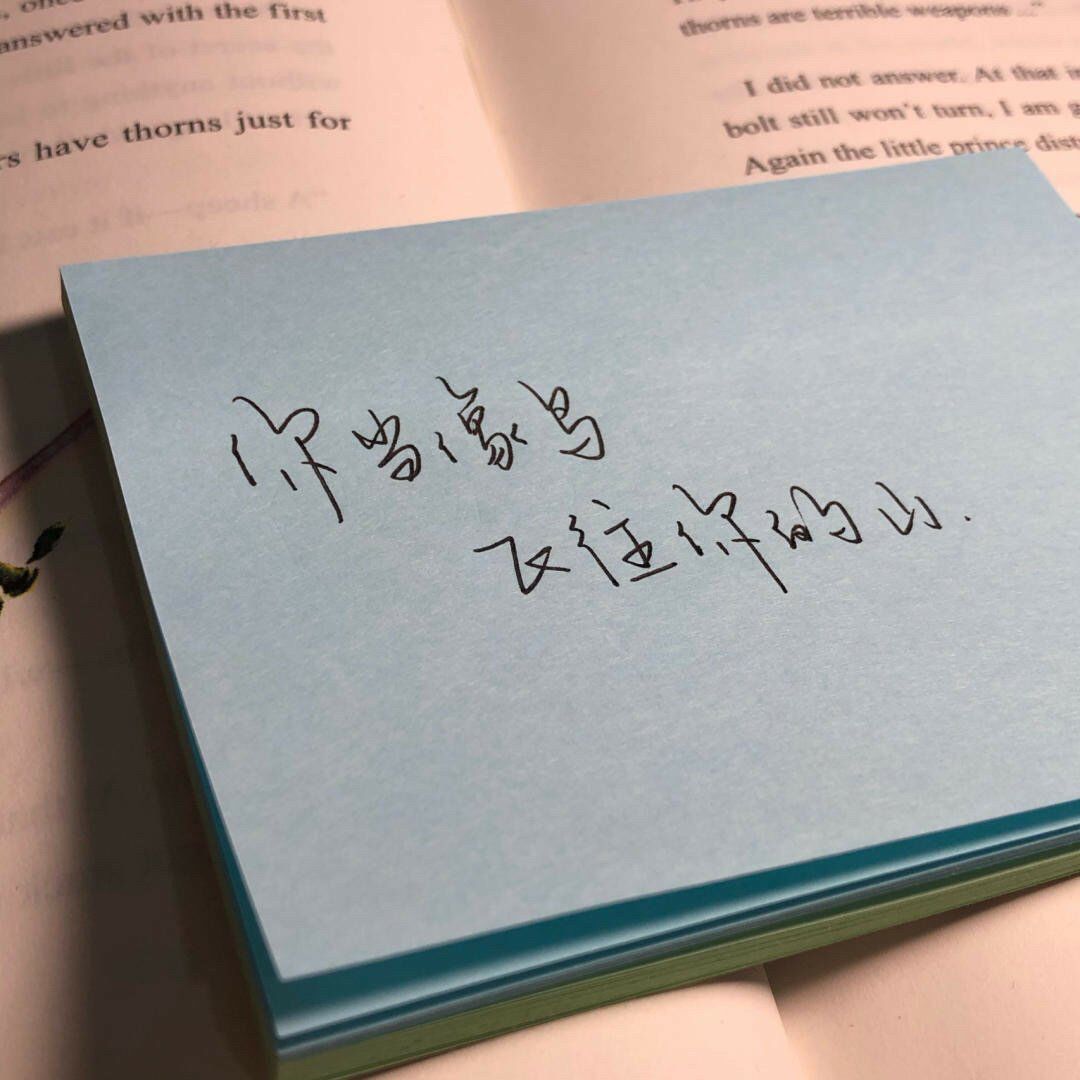 answered with the first
have thorns just for
thorns are terrible weapons ..."
I did not answer. At that
bolt still won't turn, I am
Again the little prince
你当像鸟
飞往你的山.